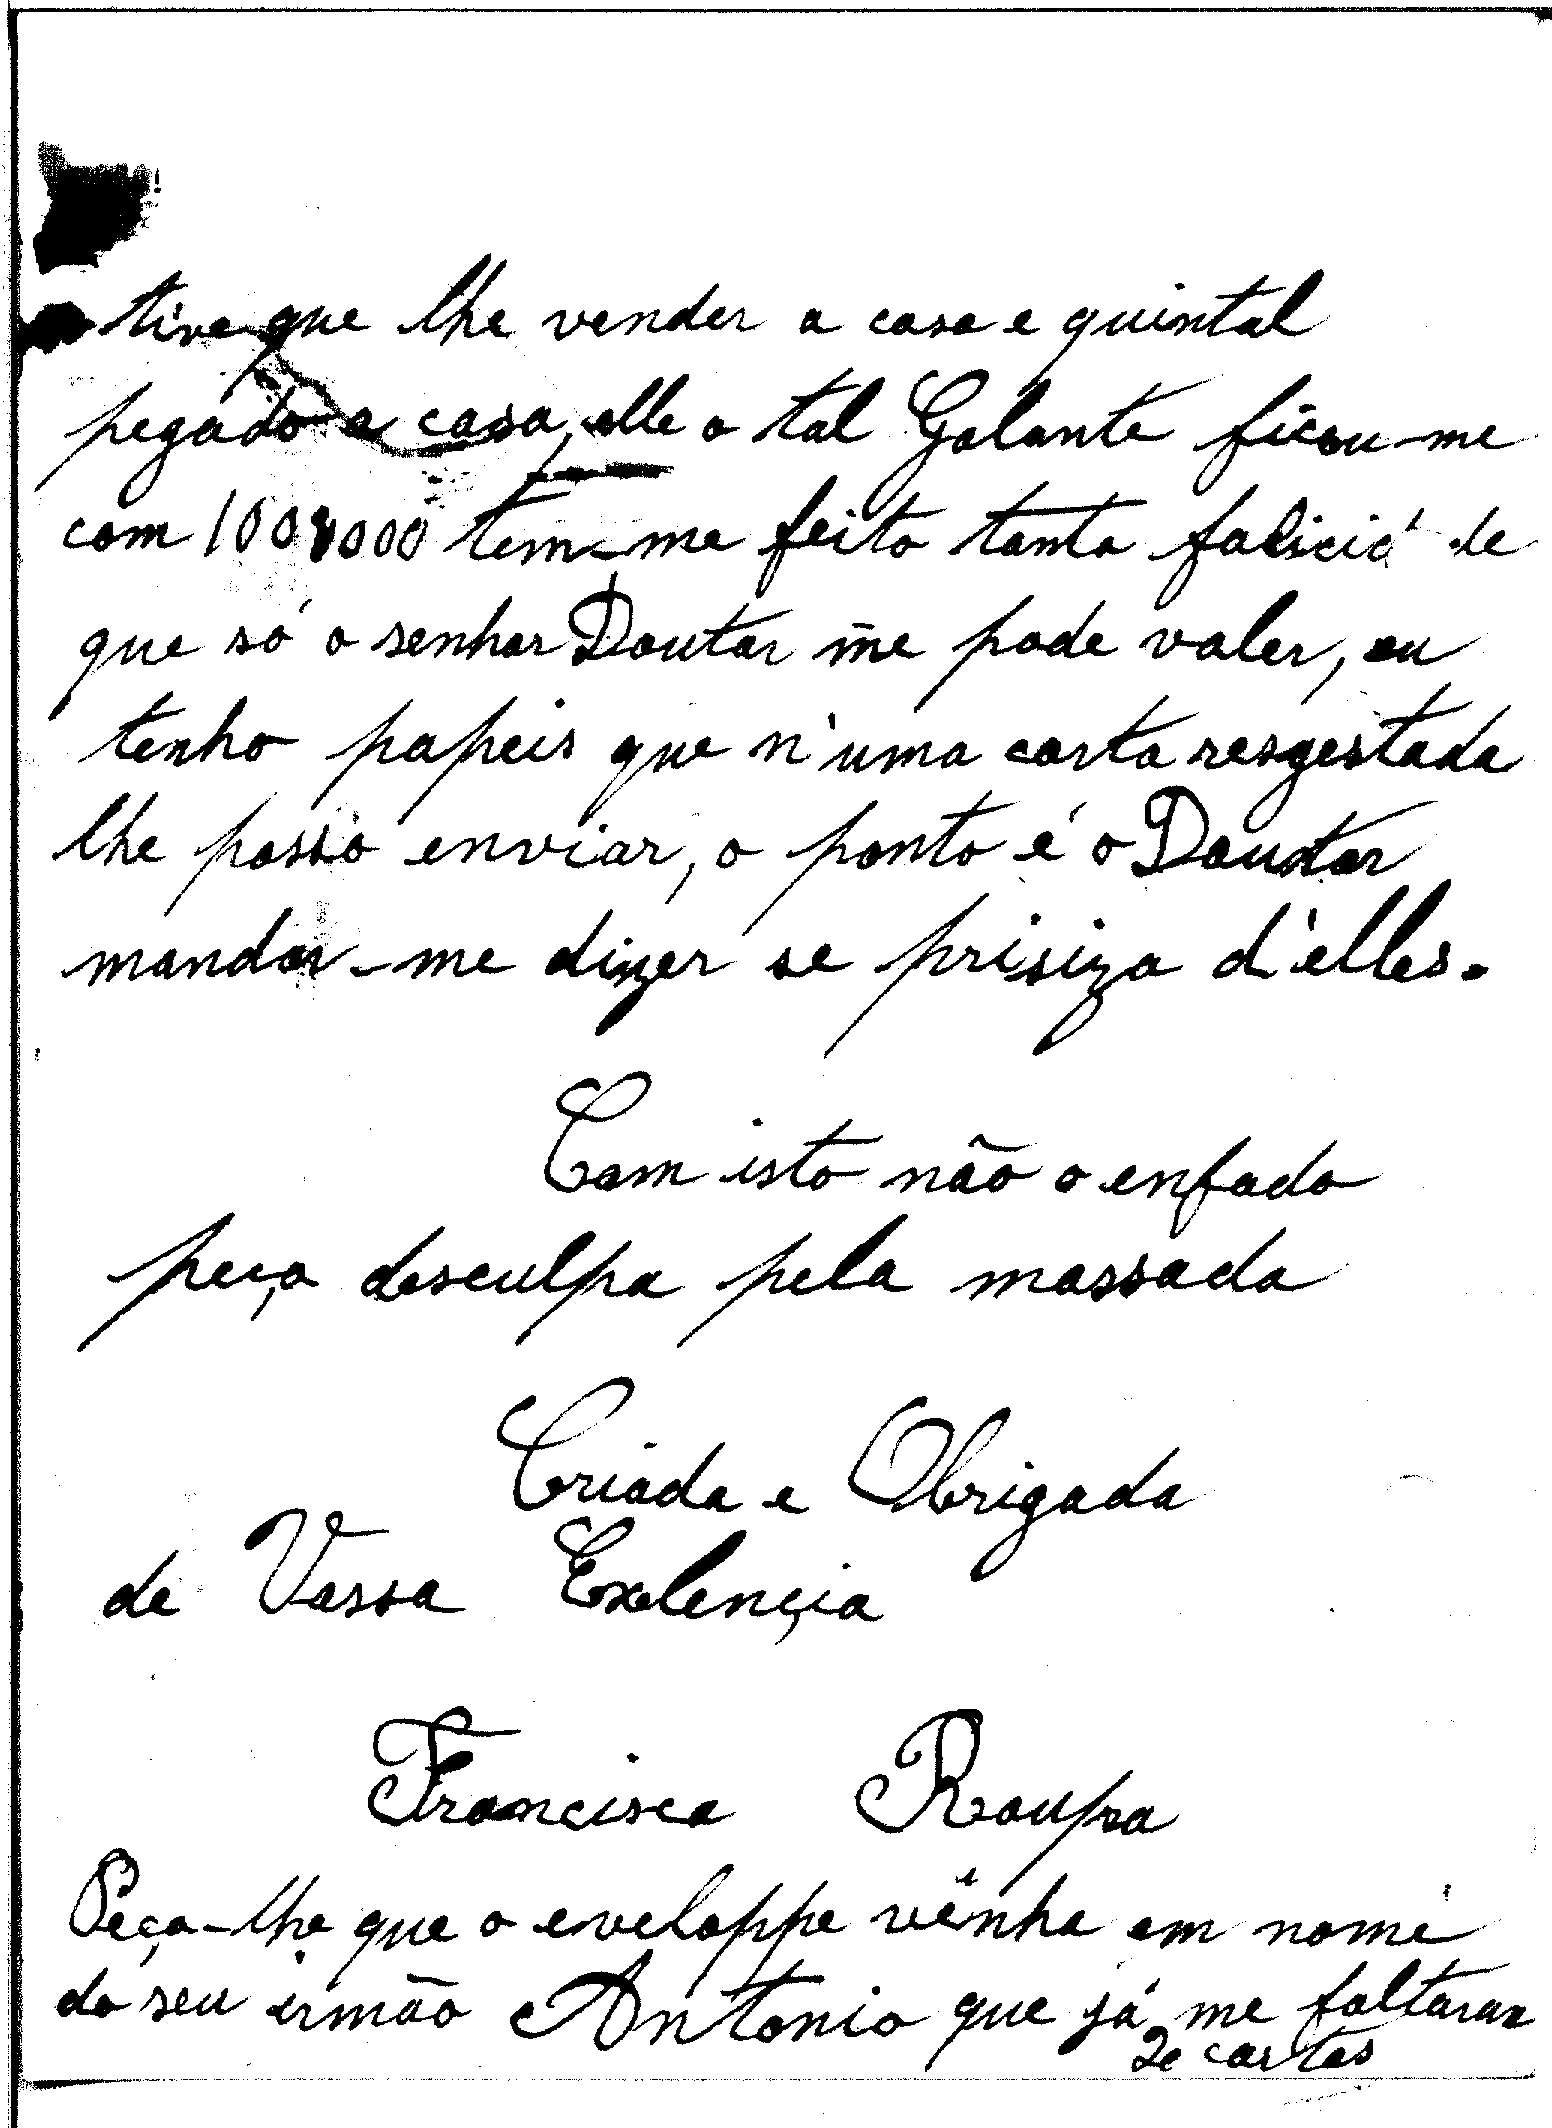 tive que lhe vender a casa e quintal
pegado a casa, elle o tal Galante ficou-me
com 100$000 tem-me feito tanta falsiciá de
que só o senhor Doutor me pode valer, eu
tenho papeis que n'uma carta resgestada
lhe posso enviar, o ponto é o Doutor
mandar-me dizer se prisiza d'elles.
Com isto não o enfado
peço desculpa pela massada
Criada e Obrigada
de Vossa Exelençia
Francisca Roupa
Peço-lhe que o eveloppe vênha em nome
do seu irmão Antonio que já me faltaran
2e cartas